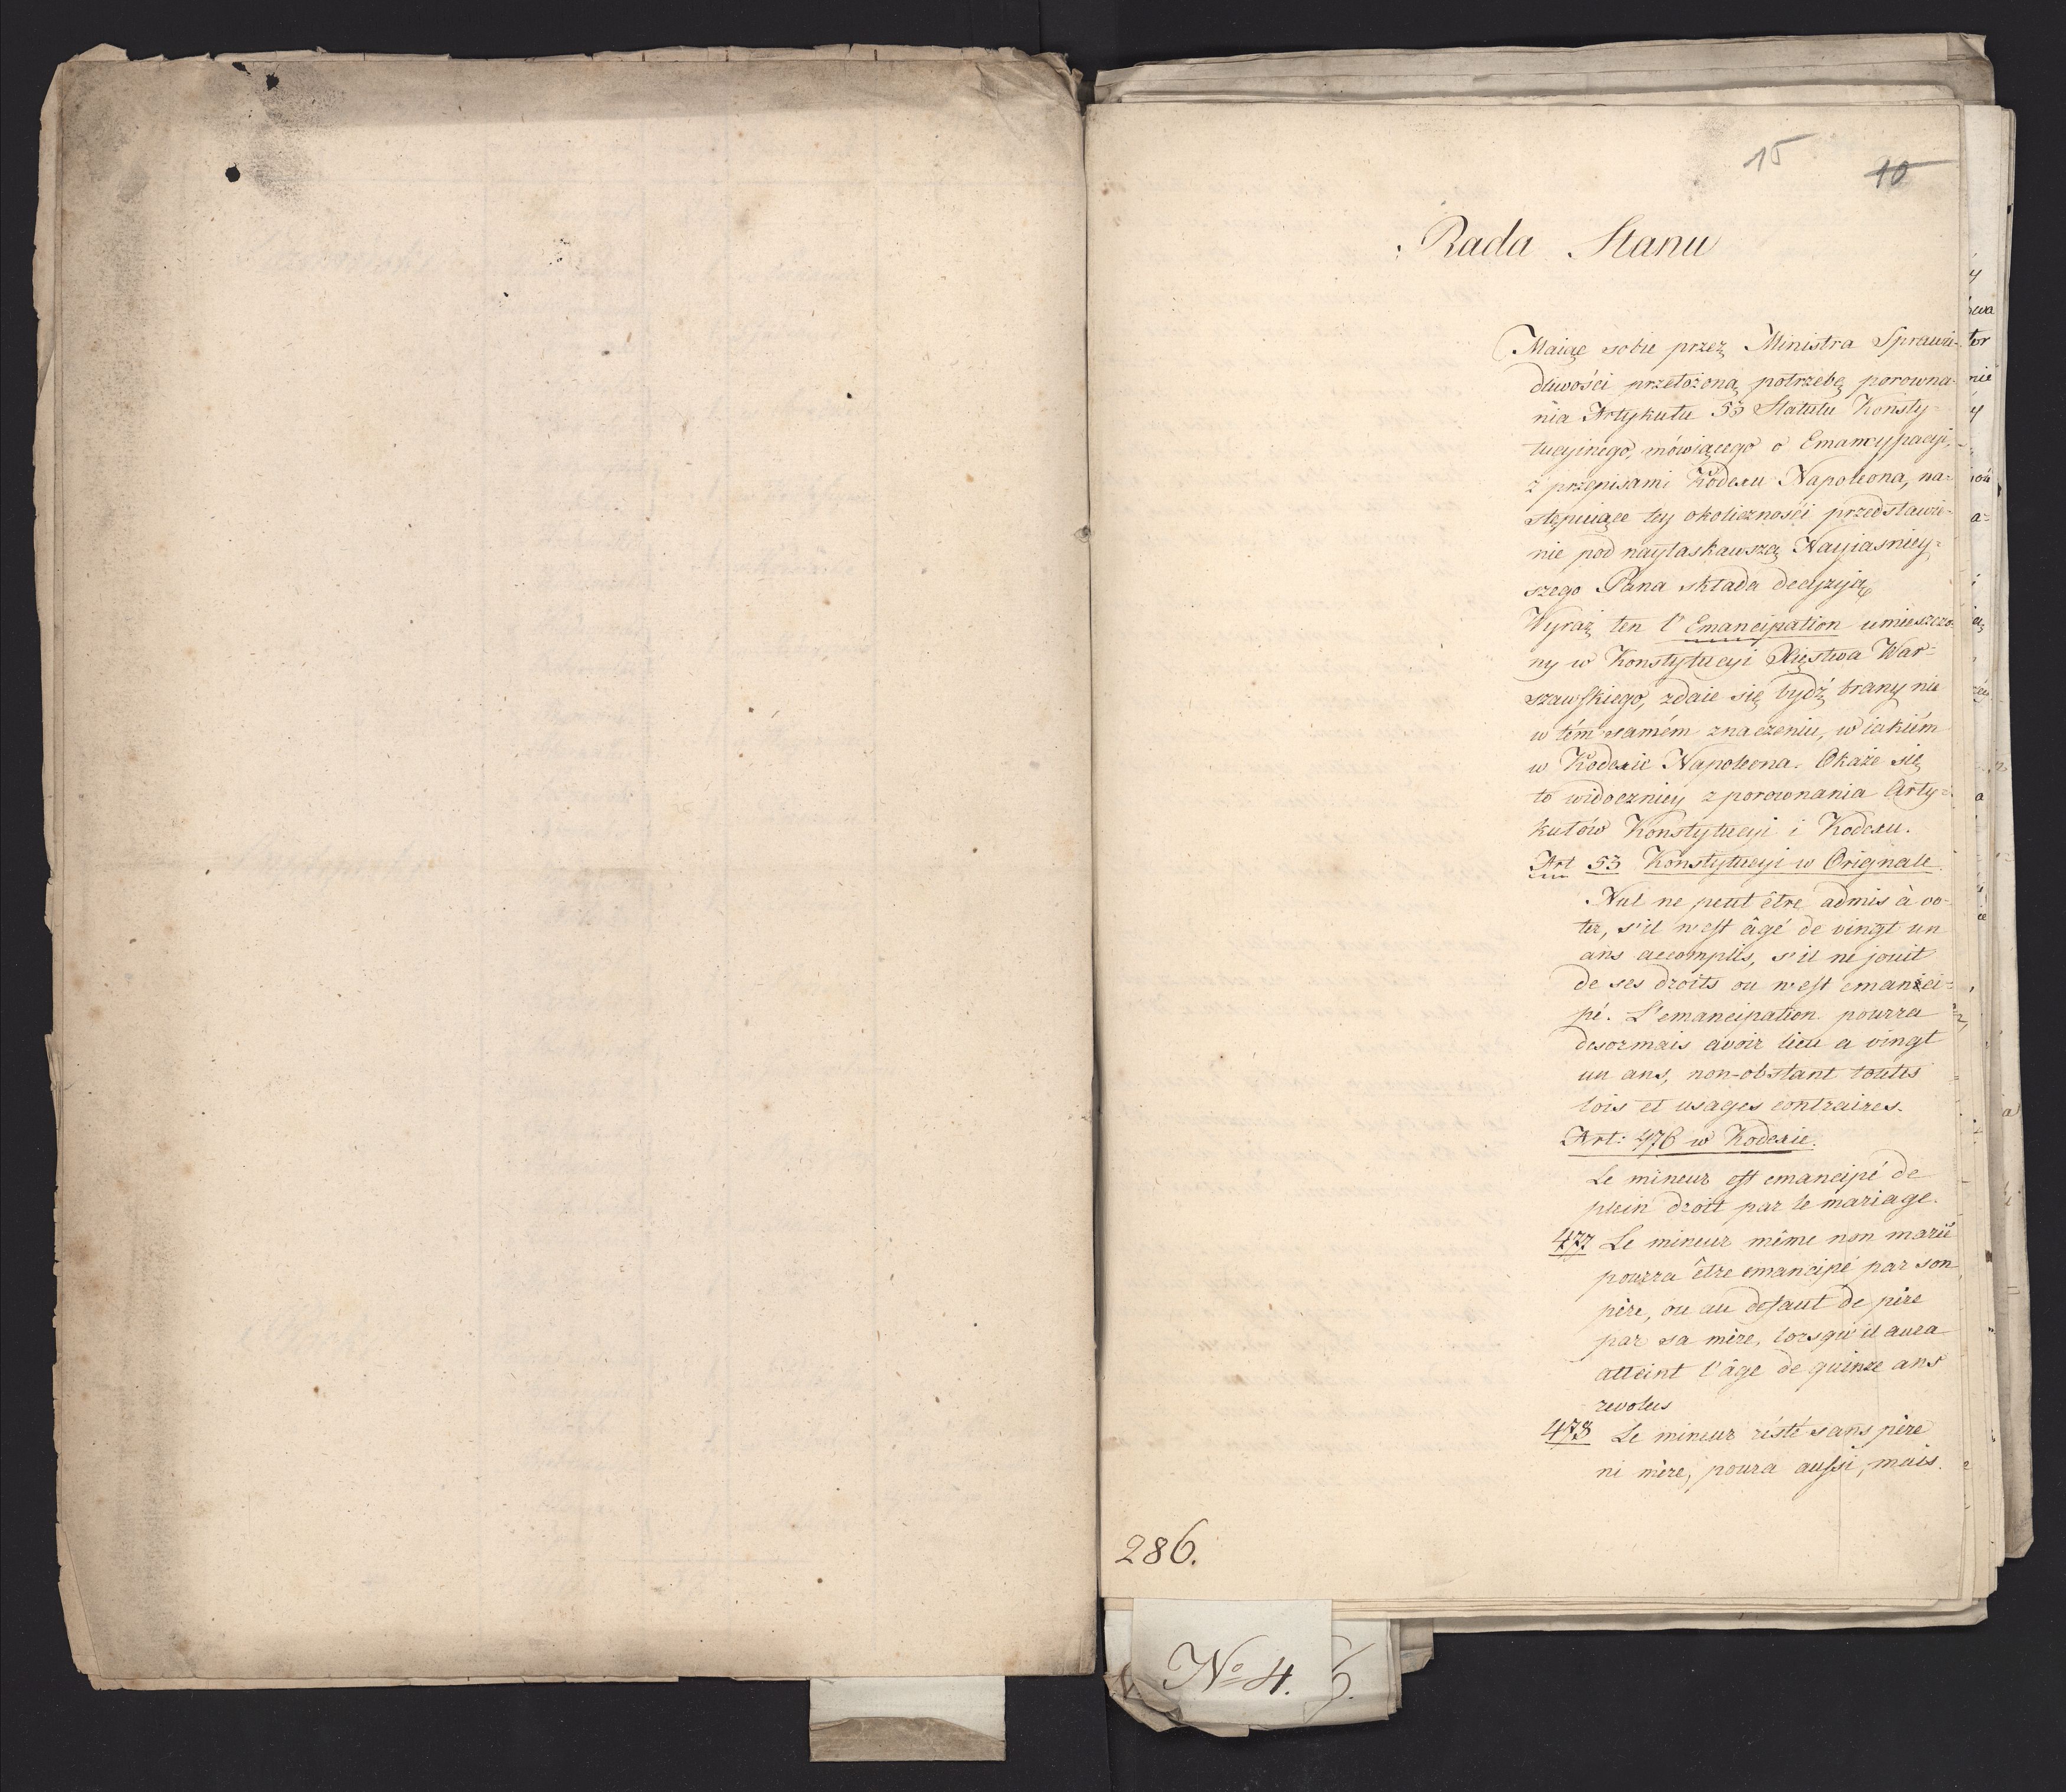 15
10
Rada Stanu
Maiąc sobie przez Ministra Sprawie-
dliwości przełożoną potrzebę porowna-
nia Artykułu 53 Statutu Konsty-
tucyinego, mówiącego o Emancypacyi,
z przepisami Kodexu Napoleona, na-
stępuiące tey okoliczności przedstawie-
nie pod nayłaskawszą Nayiasniey-
szego Pana składa decyzyią
Wyraz ten l'Emancipation umieszczo-
ny w Konstytucyi Xięstwa War-
szawskiego, zdaie się bydź brany nie
w tém samém znaczeniu, w iakiém
w Kodexie Napoleona. Okaże się
to widoczniey z porownania Arty-
kułów Konstytucyi i Kodexu.
Art 53 Konstytucyi w Orignale
Nul ne peut être admis à vo-
ter, s'il n'est âgé de vingt un
ans accomplis, s'il ne jouit
de ses droits ou n'est emanci-
pé. L'emancipation pourra
desormais avoir lieu a vingt
un ans, non-obstant toutes
lois et usages contraires.
Art: 476 w Kodexie.
Le mineur est emancipé de
plein droit par le mariage.
477 Le mineur même non marié
pourra être emancipé par son
père, ou au defaut de père
par sa mère, lorsqu'il aura
atteint l'âge de quinze ans
revolus
478 Le mineur résté sans père
ni mère, poura aussi, mais
286.
No 4.